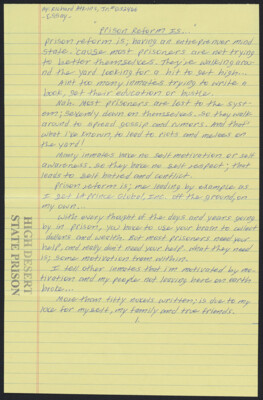 By: Richard
Prison Reform Is...
Prison reform is; having an entrepreneur mind
state. Cause most prisoners are not trying
to better themselves. They're walking aro-
und the yard looking for a hit to get high...
Not too many inmates trying to write a
book, get their education or hustle.
Nah. Most prisoners are lost to the syst-
em; severely down on themselves. So they walk
around to spread gossip and rumors. And that
what I've known, to lead to riots and melees on
the yard!
Many inmates have no self motivation or self
awareness. So they have no self respect; that
leads to self hatred and conflict.
Prison reform is; me leading by example as
I get St. Prime Global, Inc. off the ground, on
my own...
With every thought of the days and years going
by in prison, you have to use your brain to collect
dollars and wealth. But most prisoners need your
help, and really don't need your help. What they need
is; some motivation from within.
I tell other inmates that I'm motivated by mo-
tivation and my people not leaving here on earth
broke...
More than fifty novels written; is due to my
love for myself, my family and true friends.
1.
HIGH DESERT
STATE PRISON